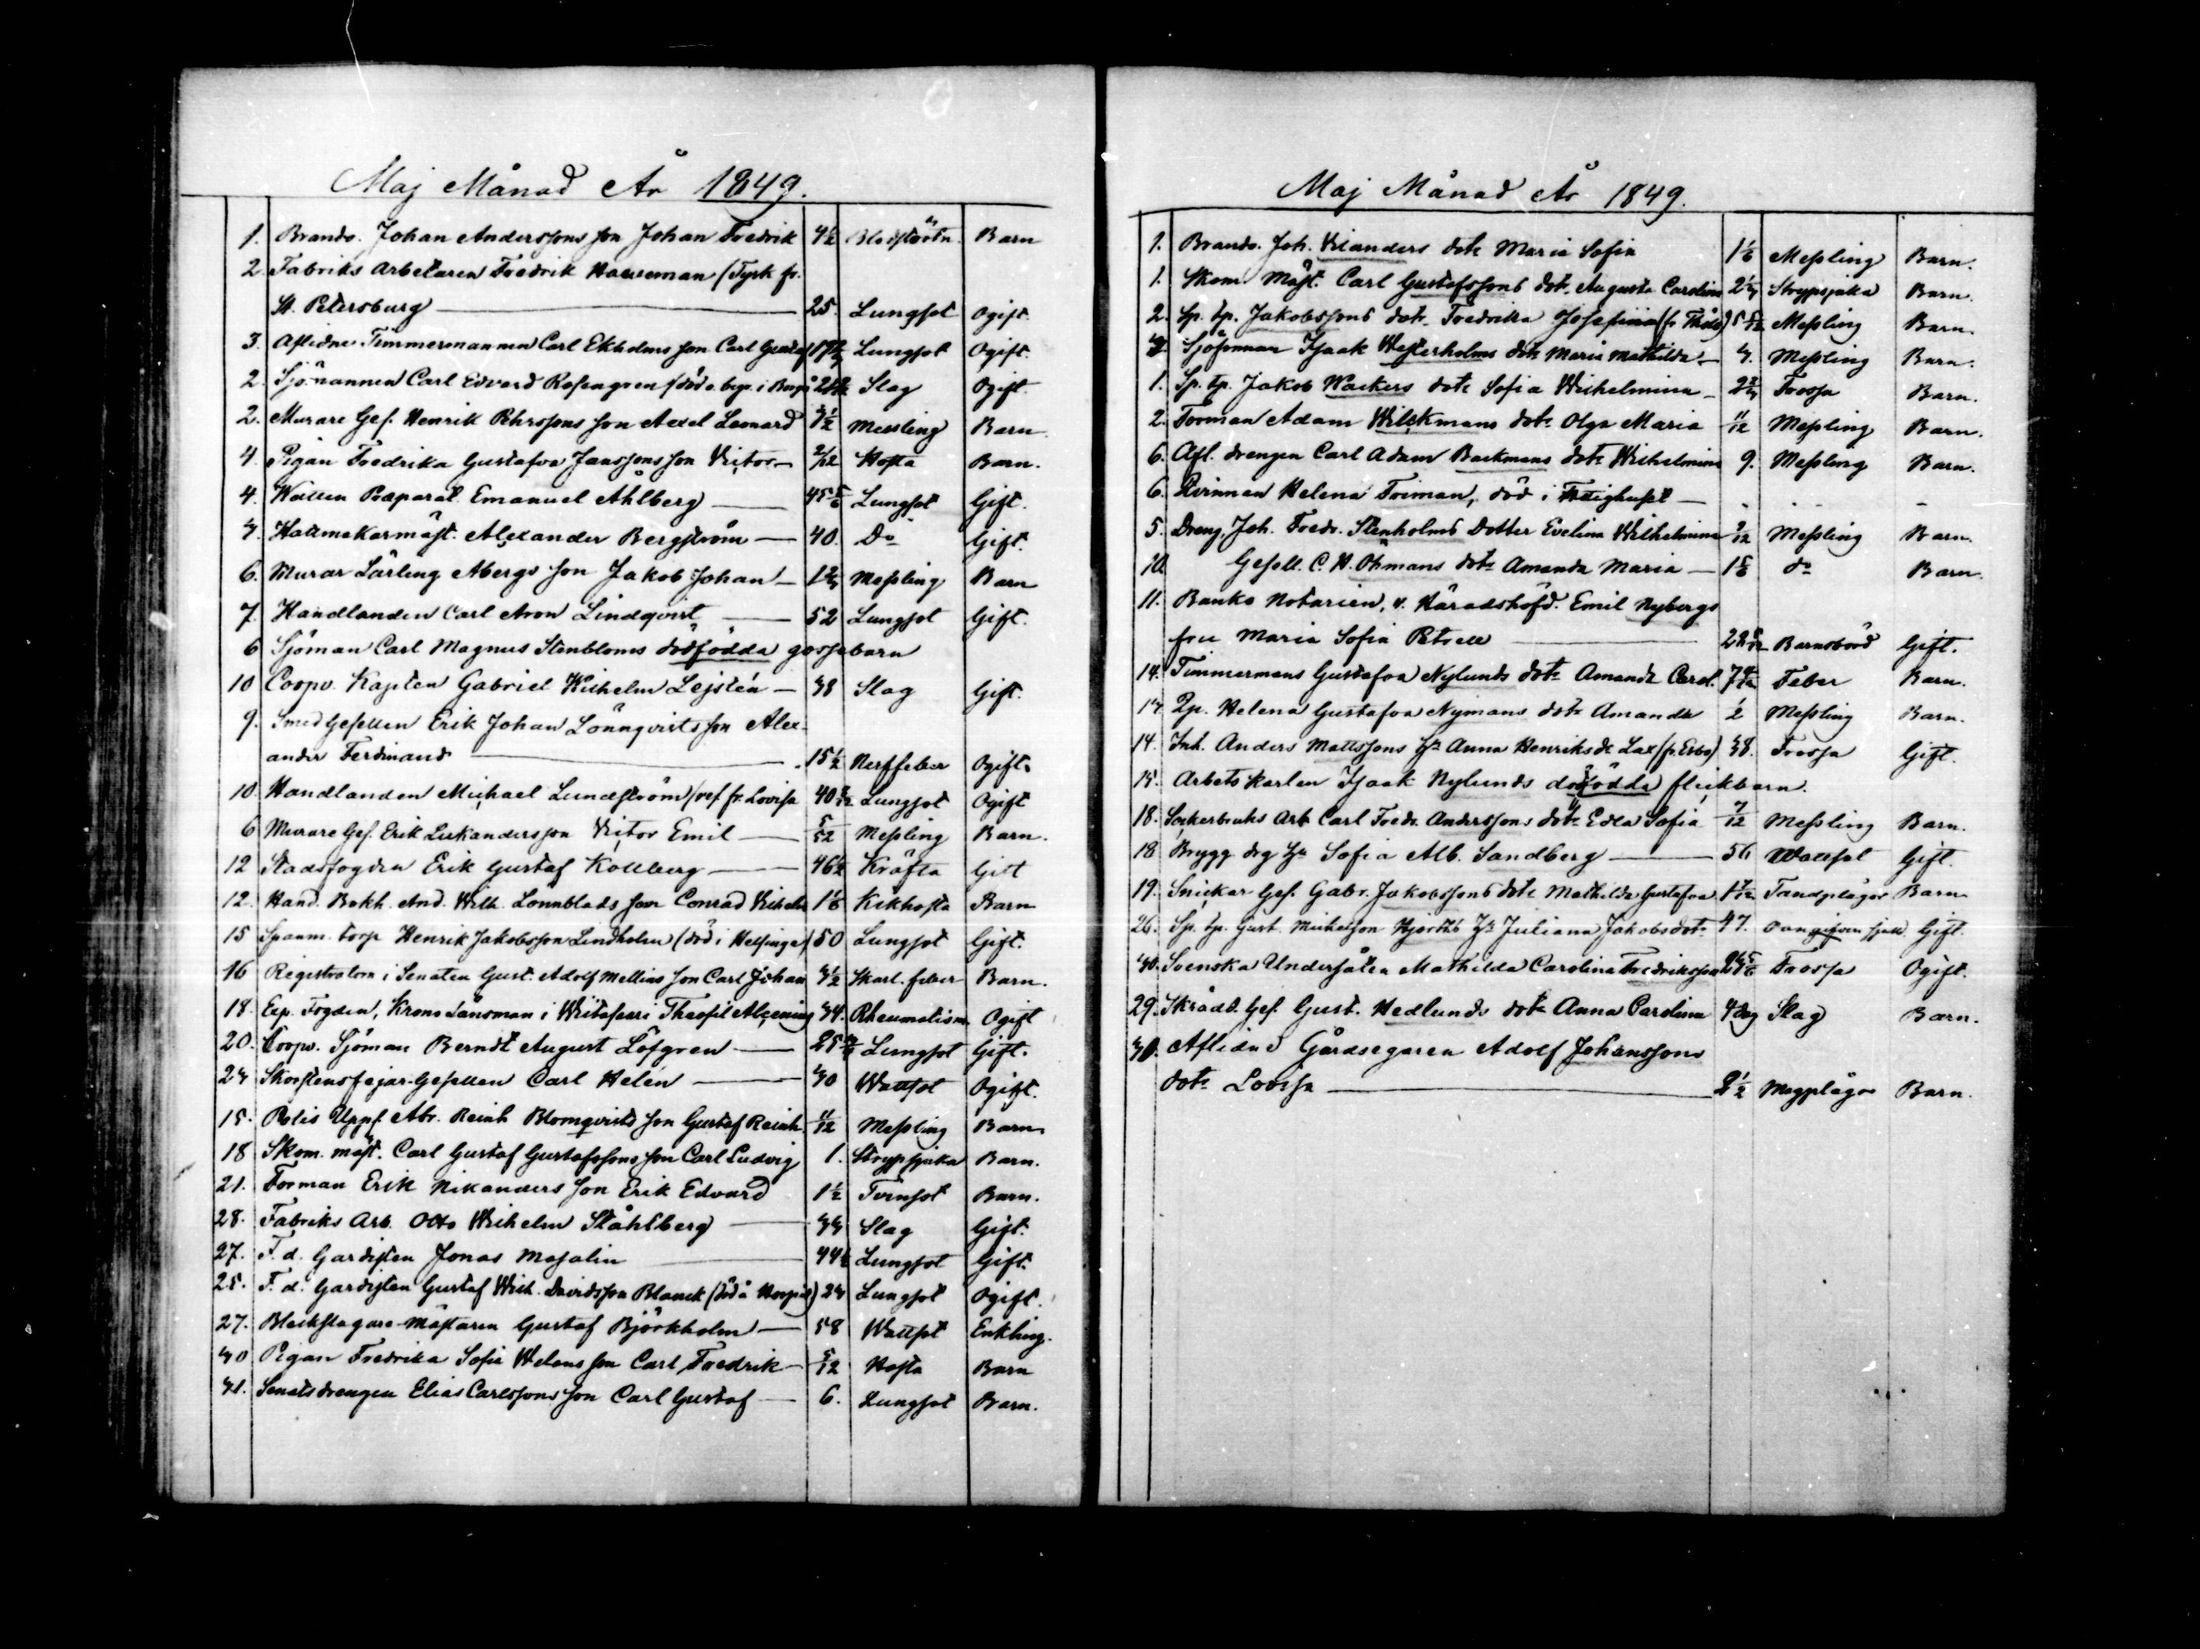 Maj Månad År 1849.
1. Brandv. Johan Anderssons son Johan Fredrik 4½ Blodstörtn. Barn
2. Fabriks Arbetaren Fredrik (Tysk fr.
St. Petersburg 25. Lungsot Ogift.
3. Aflidne Timmermannen Carl Ekholms son Carl Gustaf Lungsot Ogift.
2. Sjömannen Carl Edvard Rosengren (död o. begr. i Borgå Slag Ogift.
2. Murare Ges. Henrik Pehrssons son Axel Leonard Messling Barn
4. Pigan Fredrika Gustafva Janssons son Victor 2/12 Hosta Barn.
4. Emanuel Ahlberg 45 5/6 Lungsot Gift.
3. Hattmakarmäst. Alexander Bergström 40. Do Gift.
6. Murar Lärling Åbergs son Jakob Johan Messling Barn
7. Handlanden Carl Aron Lindqvist 52 Lungsot Gift.
6 Sjöman Carl Magnus Stenbloms dödfödda gossebarn
10 Coopv. Kapten Gabriel Wilhelm Lejstén 38 Slag Gift.
9. Smed Gesellen Erik Johan Lönnqvists son Alex-
ander Ferdinand 15½ Nerffeber Ogift.
10. Handlanden Michael Lundström (ref fr. Lovisa Lungsot Ogift
6 Murare Ges. Erik son Victor Emil 5/52 Messling Barn.
12 Stadsfogden Erik Gustaf Kollberg 46½ Kräfta Gift
12. Hand. Bokh. And. Wilh. Lönnblads son Conrad Vilhelm 1 1/6 Kikhosta Barn
15 Spanm. torp Henrik Jakobsson Lindholm (död i Helsinge) 50 Lungsot Gift.
16 Registratorn i Senaten Gust. Adolf Mellins son Carl Johan 3½ Skarl. feber Barn.
18. Exp. Fogden, Krono Länsman i Theofil 34. Rheumatism. Ogift
20. Coopv. Sjöman Berndt August Löfgren Lungsot Gift.
23 Skorstensfejar-Gesellen Carl Helén 30 Wattsot Ogift.
15. Polis Uppf. Abr. Reinh Blomqvists son Gustaf Reinh. 11/12 Messling Barn
18 Skom. mäst. Carl Gustaf Gustafssons son Carl Ludvig 1. Strypsjuka Barn.
21. Forman Erik Nikanders son Erik Edvard 1½ Barn.
28. Fabriks Arb. Otto Wilhelm Ståhlberg 33 Slag Gift.
27. F. d. Gardisten Jonas Masalin 44½ Lungsot Gift.
25. F. d. Gardisten Gustaf Wilh. Davidsson Blanck (död å Hospit.) 23 Lungsot Ogift.
27. Bleckslagare-Mästaren Gustaf Björkholm 58 Wattsot Enkling.
30 Pigan Fredrika Sofia Welens son Carl Fredrik 5/12 Hosta Barn
31. Senatsdrengen Elias Carlssons son Carl Gustaf 6. Lungsot Barn.
Maj Månad År 1849.
1. Brandv. Joh. Vilanders dotr Maria Sofia 1 1/6 Messling Barn.
1. Skom. Mäst. Carl Gustafssons dotr. Augusta Carolina Strypsjuka Barn.
2. Sp. tp. Jakobssons dotr. Fredrika Josefina Messling Barn.
3. Sjöfonman Isaak Westerholms dotr Maria Mathilda 3. Messling Barn.
1. Sp. tp. Jakob Wackers dotr Sofia Wilhelmina Trossa Barn.
2. Forman Adam Wilckmans dotr Olga Maria 11/12 Messling Barn.
6. Afl. drengen Carl Adam Backmans dotr Wilhelmina 9. Messling Barn.
6. Qvinnan Helena Froiman, död i Fattighuset
5. Dreng. Joh. Fredr. Stenholms Dotter Evelina Wilhelmina Messling Barn.
10. Gesell. C. H. Öhmans dotr Amanda Maria 1 5/6 do Barn.
11. Banko Notarien, v. Häradshöfd. Emil Nybergs
fru Maria Sofia Petrell Barnsbörd Gift.
14. Timmermans Gustafva Nylunds dotr Amanda Carol. Feber Barn.
13. Qp. Helena Gustafva Nymans dotr Amanda ½ Messling Barn.
14. Inh. Anders Mattssons Hu Anna Henriksdr Lax (fr. Esbo) 38. Trossa Gift.
15. Arbetskarlen Isaak Nylunds dödfödda flickbarn.
18. Sockerbruks Arb Carl Fredr. Anderssons dotr Edla Sofia 7/12 Messling Barn.
18 Brygg drg Hu Sofia Alb. Sandberg 56 Wattsot Gift.
19. Snickar Ges. Gabr. Jakobssons dotr Mathilda Gustafva Tandplågor Barn
26. Sp. tp. Gust. Michelson Hjorths Hu Juliana Jakobsdotr 47. Gift.
30. Svenska Undersåten Mathilda Carolina Fredriksson Trossa Ogift.
29. Skrädd. Ges. Gust. Hedlunds dotr Anna Carolina 4 dag Slag Barn.
30. Aflidne Gårdsegaren Adolf Johanssons
dotr Lovisa 2½ Magplågor Barn.